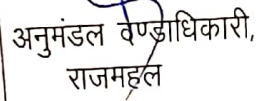 अनुमंडल दण्डाधिकारी,
राजमहल